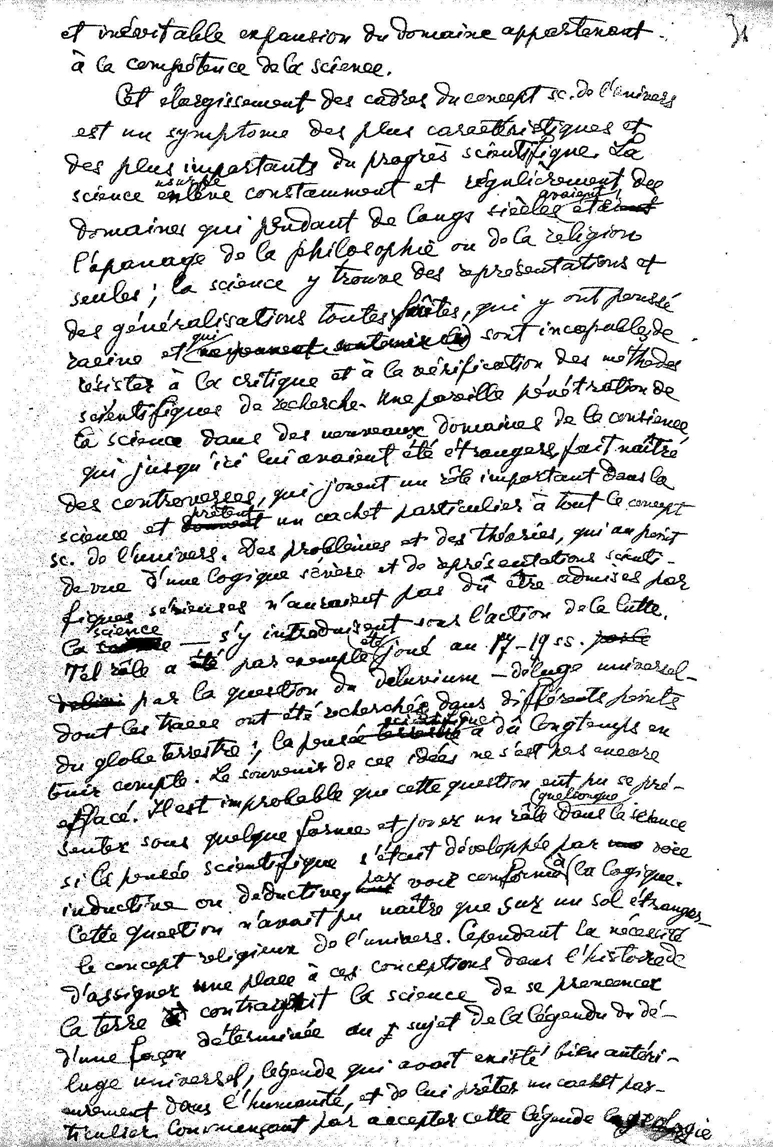 31
et inévitable expansion du domaine appartenant
à la compétence de la science.
Cet élargissement des cadres du concept sc. de l'univers
est un symptome des plus caractéristiques et
des plus importants du progrès scientifique. La
science enlève constamment et régulièrement des
domaines qui pendant de longs siècles étaient
l'apanage de la philosophie ou de la religion
seules; la science y trouve des représentations et
des généralisations toutes faites, qui y ont poussé
racine et qui sont incapables de
résister à la critique et à la vérification des méthodes
scientifiques de recherche. Une pareille pénétration de
la science dans des nouveaux domaines de la consience,
qui jusqu'ici lui avaient été étrangers, fait naître
des controverses, qui jouent un rôle important dans la
science et prêtent un cachet particulier à tout le concept
sc. de l'univers. Des problèmes et des théories, qui au point
de vue d'une logique sévère et de représentations scienti-
fiques sérieuses n'auraient pas dû être admises par
la science — s'y introduisent sous l'action de la lutte.
Tel rôle a été par exemple joué au 17-19 ss.
par la question du déluvium – déluge universel-
dont les traces ont été recherchés dans différents points
du globe terrestre; la pensée scientifique a dû longtemps en
tenir compte. Le souvenir de ces idées ne s'est pas encore
effacé. Il est improbable que cette question eut pu se pré-
senter sous quelque forme et jouer un rôle quelconque dans la science
si la pensée scientifique s'était développée par voie
inductive ou déductive, par voie conforme à la logique.
Cette question n'avait pu naître que sur un sol étranger-
le concept religieux de l'univers. Cependant la nécessité
d'assigner une place à ces conceptions dans l'histoire de
la terre contraignit la science de se prononcer
d'une façon déterminée au sujet de la légende du dé-
luge universel, légende qui avait existé bien antéri-
eurement dans l'humanité, et de lui prêter un cachet par-
ticulier. Commençant par accepter cette légende